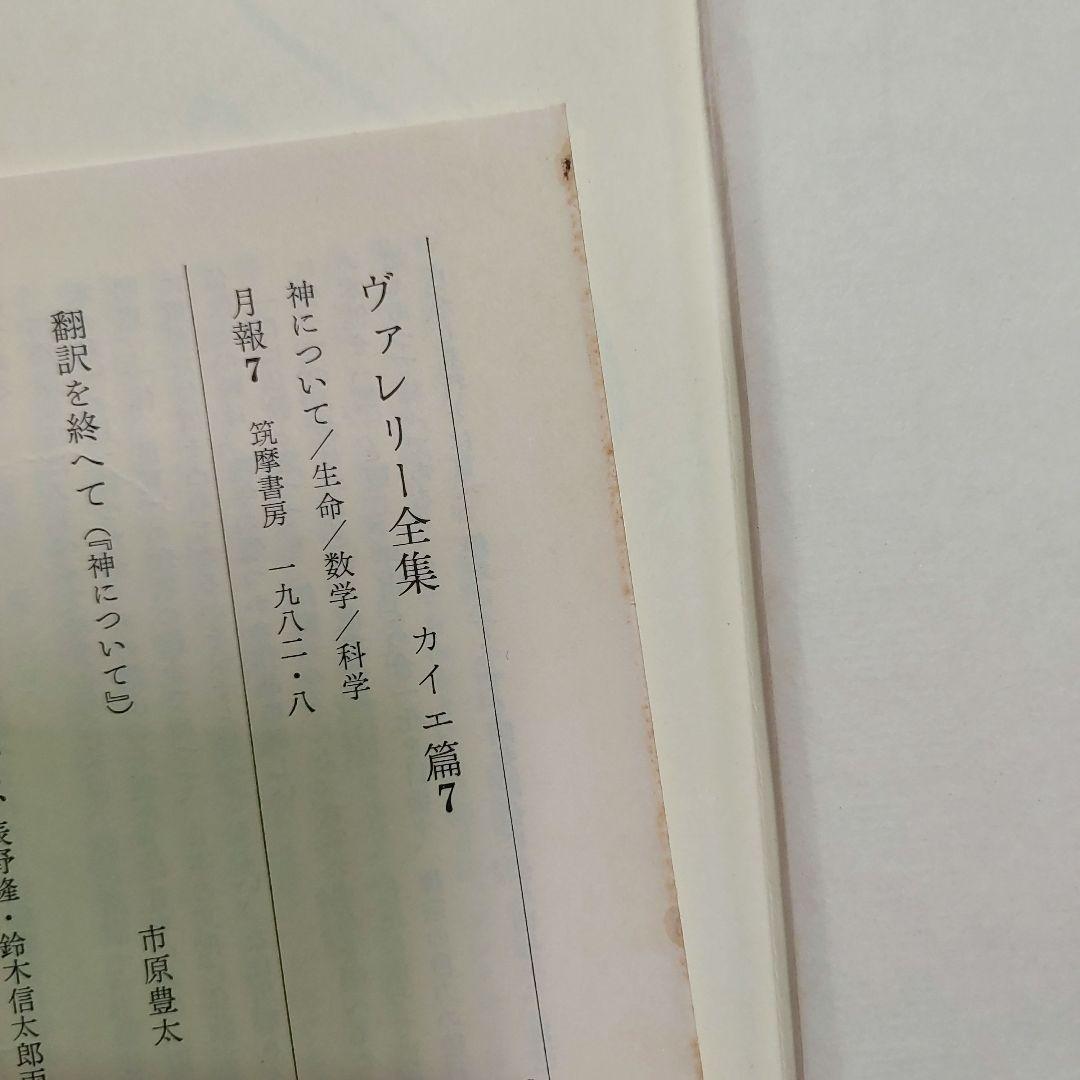 ヴァレリー全集 カイエ篇7
神について/生命/数学/科学
月報7 筑摩書房 一九八二・八
翻訳を終へて(『神について』)
市原豊太
野隆・鈴木信太郎